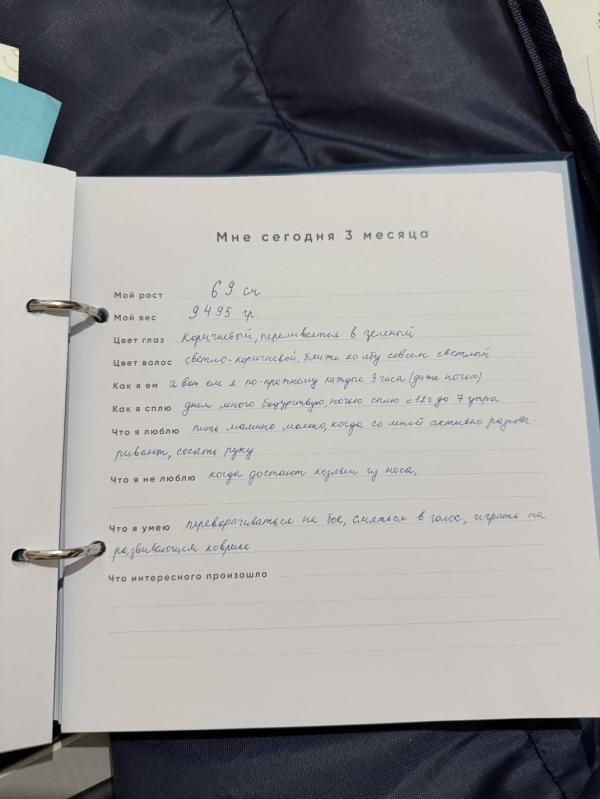 Мне сегодня 3 месяца
Мой рост 69 см
Мой вес 9495 гр.
Цвет глаз коричневый, переливается в зеленый
Цвет волос светло-коричневый, ближе ко лбу совсем светлый
Как я ем а вот ем я по-прежнему каждые 3 часа (даже ночью)
Как я сплю днем много бодрствую, ночью сплю с 12ч до 7 утра
Что я люблю пить мамино молоко, когда со мной активно разгова-
ривают, сосать руку
Что я не люблю когда достают козявки из носа,
Что я умею переворачиваться на бок, смеяться в голос, играть на
развивающем коврике
Что интересного произошло